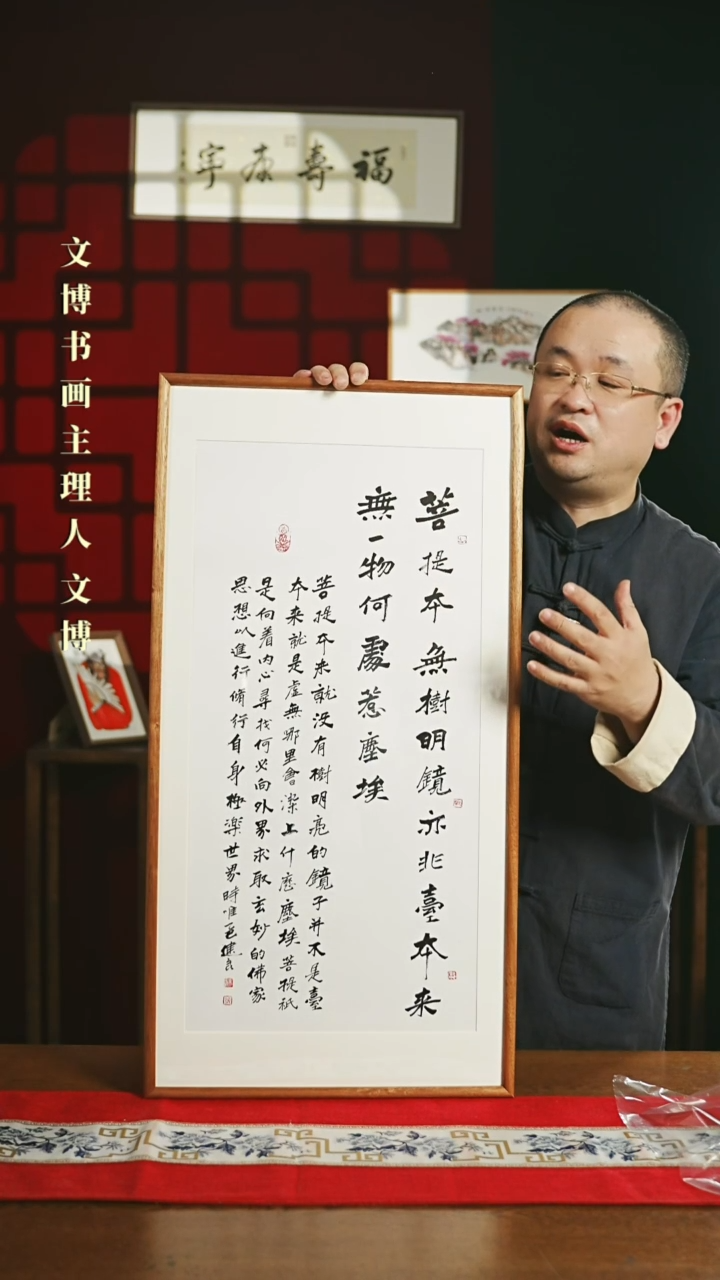 福壽康寧
文博书画主理人文博
菩提本無樹明鏡亦非臺本来
無一物何處惹塵埃
菩提本来就没有樹明亮的鏡子并不是臺
本来就是虚無哪里會染上什麽塵埃菩提祇
是向着内心尋找何必向外界求取玄妙的佛家
思想以進行修行自身極楽世界時唯